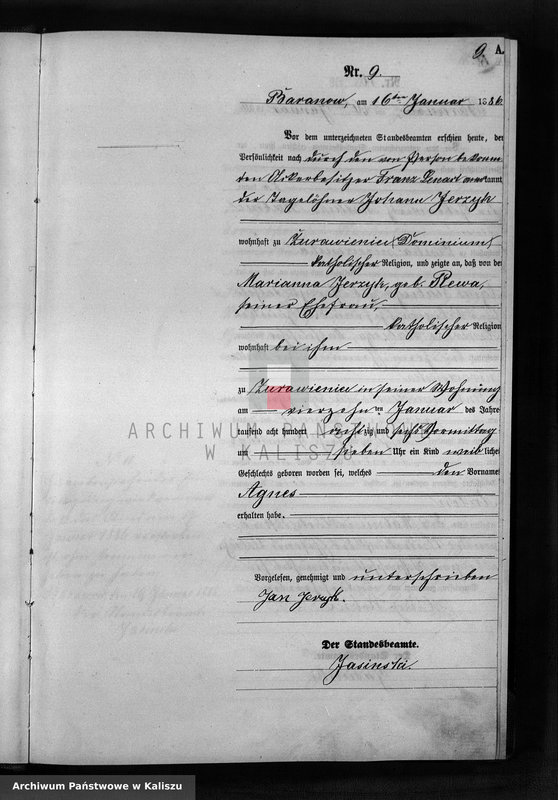 9. A.
Nr. 9.
Baranow, am 16ten Januar 1886.
Vor dem unterzeichneten Standesbeamten erschien heute, der
Persönlichkeit nach durch den von Person bekann-
ten Ackerbesitzer Franz Lenart anerkannt
der Tagelöhner Johann Jerzyk
wohnhaft zu Żurawieniec (Dominium)
katholischer Religion, und zeigte an, daß von der
Marianna Jerzyk, geb. Rewa,
seiner Ehefrau,
katholischer Religion
wohnhaft bei ihm
zu Żurawieniec in seiner Wohnung
am vierzehnten Januar des Jahres
tausend acht hundert achtzig und sechs Vormittag
um sieben Uhr ein Kind weibliches
Geschlechts geboren worden sei, welches den Vornamen
Agnes
erhalten habe.
Vorgelesen, genehmigt und unterschrieben
Jan Jerzyk.
Der Standesbeamte.
Jasinski.
ARCHIWUM PAŃSTWOWE
W KALISZU
Archiwum Państwowe w Kaliszu